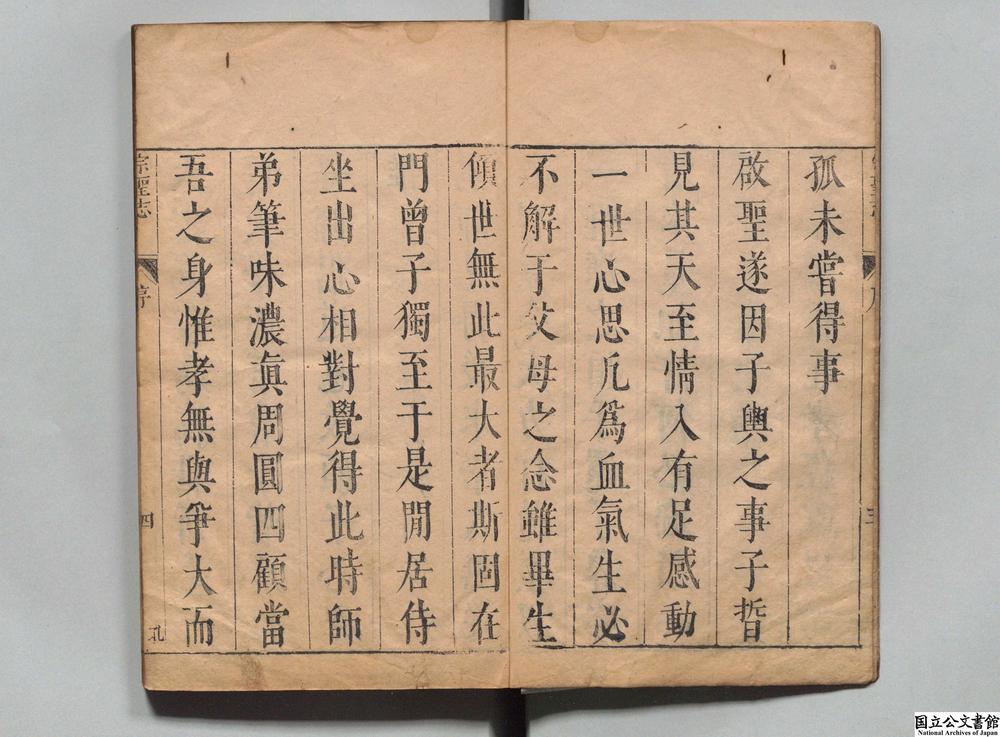 孤未嘗得事
啟聖遂因子輿之事子晳
見其天至情入有足感動
一世心思凡爲血氣生必
不解于父母之念雖畢生
傾世無此最大者斯固在
門曾子獨至于是閒居侍
坐出心相對覺得此時師
弟筆味濃眞周圓四顧當
吾之身惟孝無與爭大而
宗聖志
序
四
孔
国立公文書館
National Archives of Japan